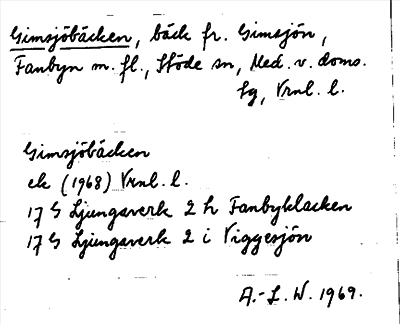 Gimsjöbäcken, bäck fr. Gimsjön,
Fanbyn m. fl., Stöde sn, Med. v. doms.
fg, Vrnl. l.
Gimsjöbäcken
ek (1968) Vrnl. l.
17 G Ljungaverk 2 h Fanbyklacken
17 G Ljungaverk 2 i Viggesjön
A.-L. W. 1969.